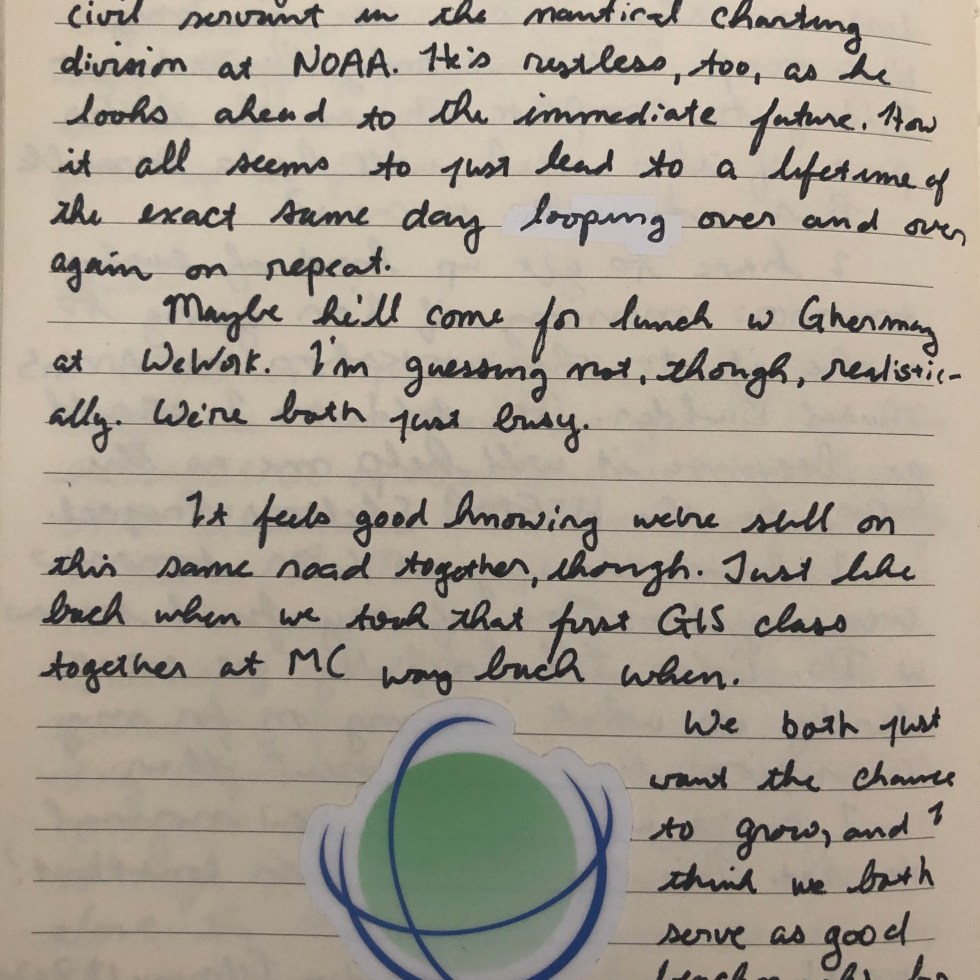 civil servant in the nautical charting
division at NOAA. He's restless, too, as he
looks ahead to the immediate future. How
it all seems to just lead to a lifetime of
the exact same day looping over and over
again on repeat.
Maybe he'll come for lunch w Ghermay
at WeWork. I'm guessing not, though, realistic-
ally. We're both just busy.
It feels good knowing we're still on
this same road together, though. Just like
back when we took that first GIS class
together at MC way back when.
We both just
want the chance
to grow, and I
think we both
serve as good